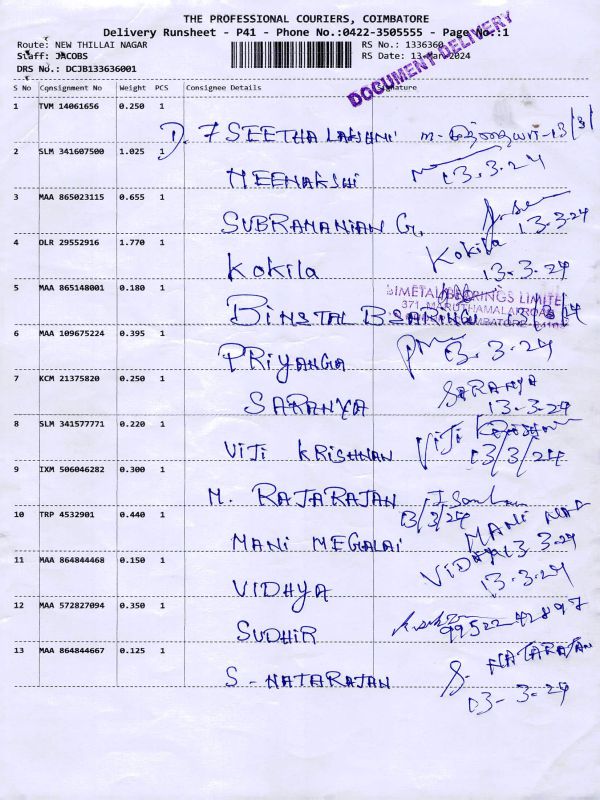 THE PROFESSIONAL COURIERS, COIMBATORE
Delivery Runsheet - P41 - Phone No.:0422-3505555 - Page No.:1
Route: NEW THILLAI NAGAR RS No.: 1336360
Staff: JACOBS RS Date: 13-Mar-2024
DRS No.: DCJB133636001
DOCUMENT DELIVERY
S No Consignment No Weight PCS Consignee Details Signature
1 TVM 14061656 0.250 1
D. 7 SEETHA LAKSHMI 13/3/
2 SLM 341607500 1.025 1
MEENAKSHI 13.3.24
3 MAA 865023115 0.655 1
SUBRAMANIAN G. 13.3.24
4 DLR 29552916 1.770 1
Kokila Kokila 13.3.24
5 MAA 865148001 0.180 1
BIMETAL BEARINGS LIMITED
371, MARUTHAMALAI ROAD
BIMETAL BEARING 13/3/24
6 MAA 109675224 0.395 1
PRiYANGA 13.3.24
7 KCM 21375820 0.250 1
SARANYA SARANYA 13.3.24
8 SLM 341577771 0.220 1
VIJI KRISHNAN VIJI 13/3/24
9 IXM 506046282 0.300 1
M. RAJARAJAN 13/3/24
10 TRP 4532901 0.440 1
MANI MEGALAI MANI 13.3.24
11 MAA 864844468 0.150 1
VIDHYA VIDHYA 13.3.24
12 MAA 572827094 0.350 1
SUDHIR 9952242897
13 MAA 864844667 0.125 1
S-NATARAJAN S. NATARAJAN
13-3-24